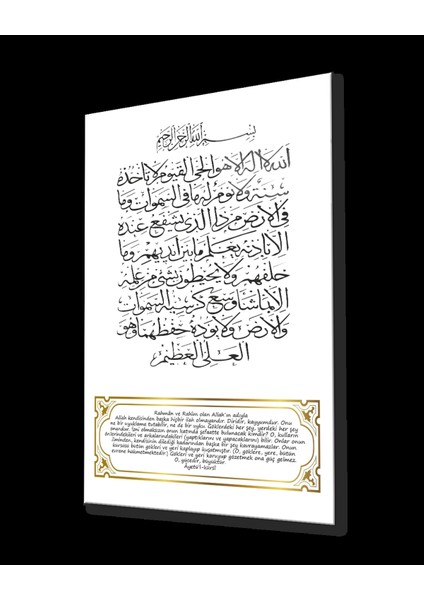 بسم الله الرحمن الرحيم
الله لا اله الا هو الحي القيوم لا تأخذه
سنة ولا نوم له ما في السموات وما
في الارض من ذا الذي يشفع عنده
الا باذنه يعلم ما بين ايديهم وما
خلفهم ولا يحيطون بشئ من علمه
الا بما شاء وسع كرسيه السموات
والارض ولا يوده حفظهما وهو
العلي العظيم
Rahmân ve Rahîm olan Allah'ın adıyla
Allah kendisinden başka hiçbir ilah olmayandır. Diridir, kayyumdur. Onu
ne bir uyuklama tutabilir, ne de bir uyku. Göklerdeki her şey, yerdeki her şey
onundur. İzni olmaksızın onun katında şefaatte bulunacak kimdir? O, kulların
önlerindekileri ve arkalarındakileri (yaptıklarını ve yapacaklarını) bilir. Onlar onun
ilminden, kendisinin dilediği kadarından başka bir şey kavrayamazlar. Onun
kürsüsü bütün gökleri ve yeri kaplayıp kuşatmıştır. (O, göklere, yere, bütün
evrene hükmetmektedir.) Gökleri ve yeri koruyup gözetmek ona güç gelmez.
O, yücedir, büyüktür.
Âyetü'l-kürsî